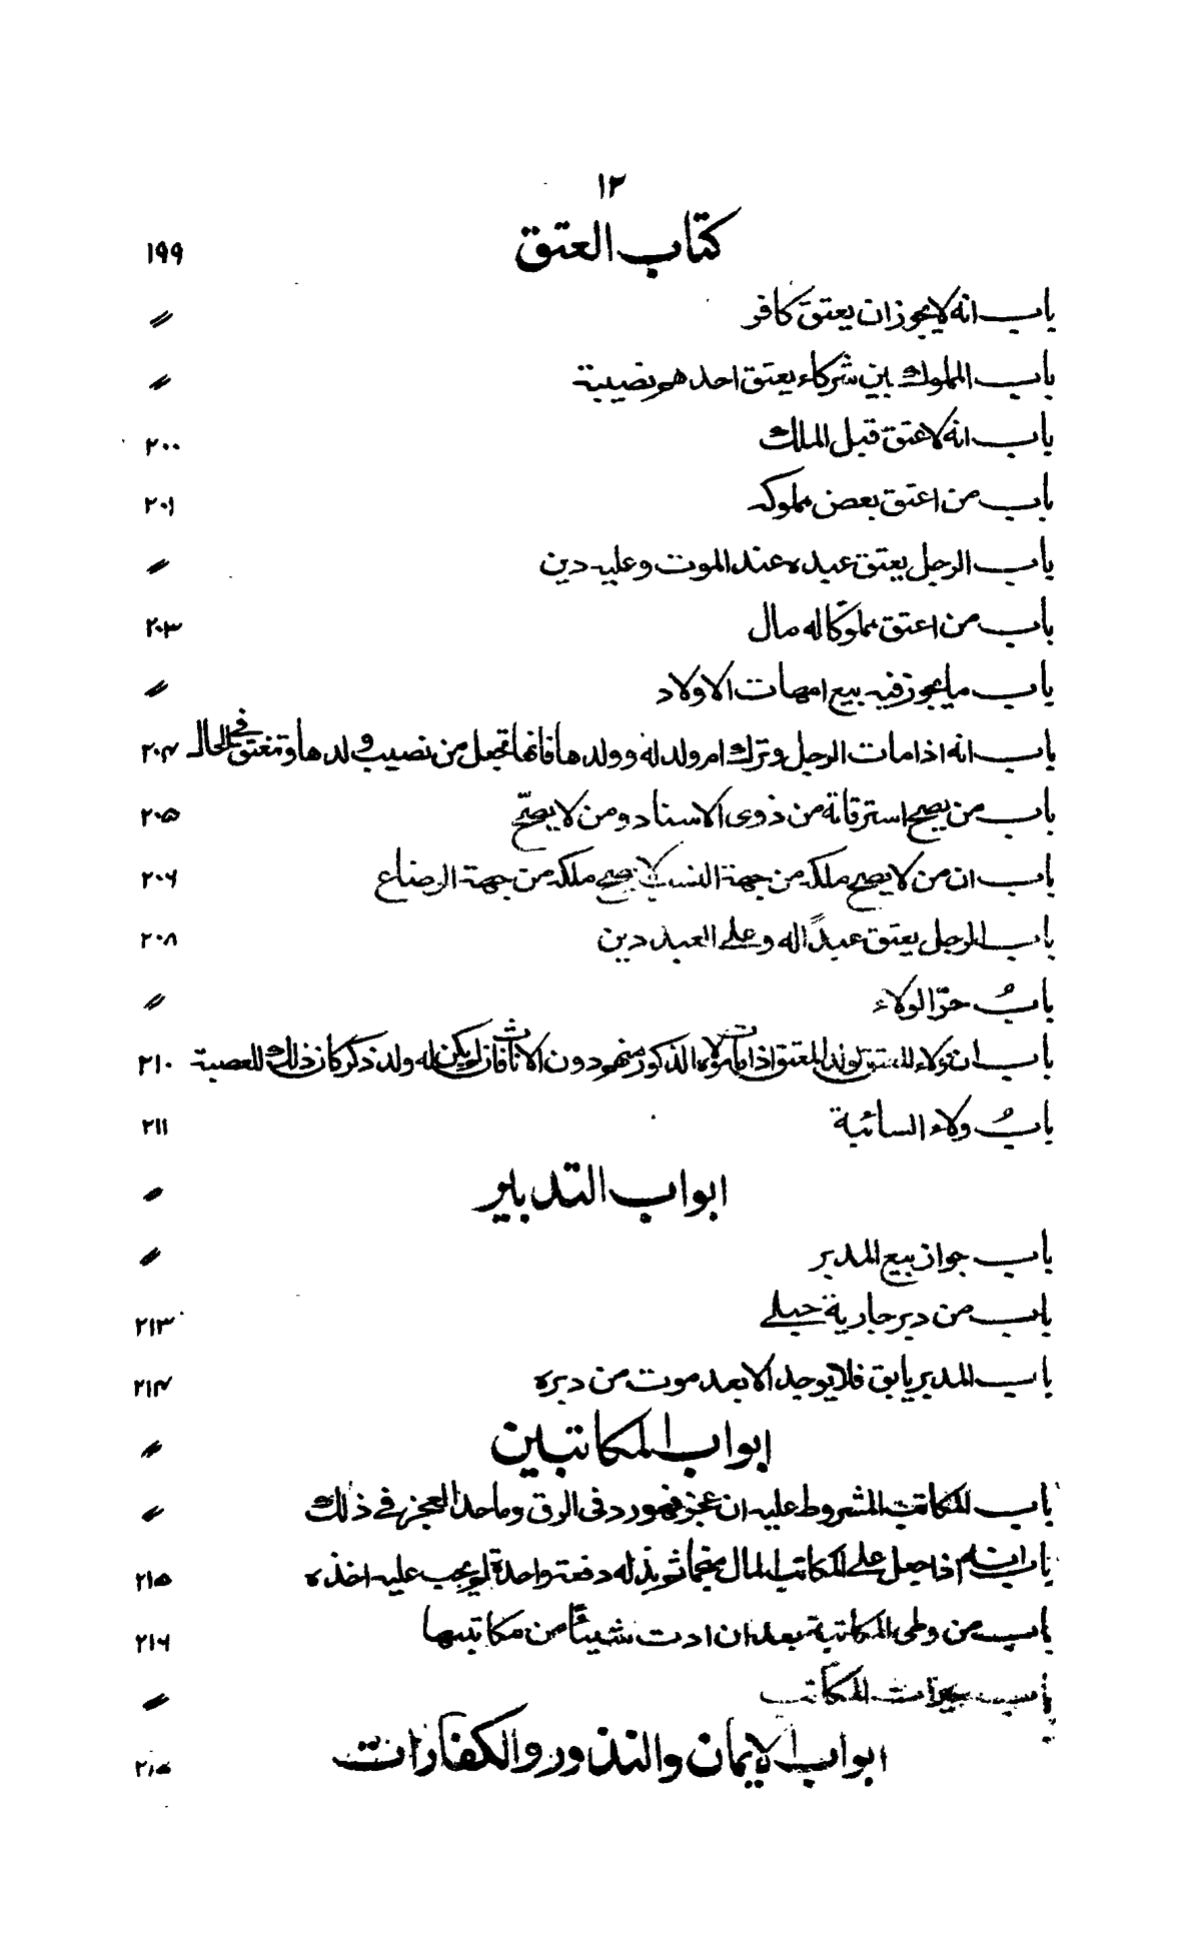 ١٢
كتاب العتق ١٩٩
باب انه لا يجوز ان يعتق كافر 〃
باب المملوك بين شركاء يعتق احدهم نصيبة 〃
باب انه لا عتق قبل الملك ٢٠٠
باب من اعتق بعض مملوكه ٢٠١
باب الرجل يعتق عبده عند الموت وعليه دين 〃
باب من اعتق مملوكا له مال ٢٠٣
باب ما يجوز فيه بيع امهات الاولاد 〃
باب انه اذا مات الرجل وترك ام ولد له وولدها فانها تجعل من نصيب ولدها وتنعتق في الحال ٢٠٤
باب من يصح استرقاقة من ذوى الانساب ومن لا يصحّ ٢٠٥
باب ان من لا يصح ملكه من جهة النسب لا يصح ملكه من جهة الرضاع ٢٠٦
باب الرجل يعتق عبدًا له وعلى العبد دين ٢٠٨
بابُ جرّ الولاء 〃
باب ان ولاء المعتق لولد المعتق اذا مات مولاه الذكور منهم دون الاناث فان لم يكن له ولد ذكر كان ذلك للعصبة ٢١٠
بابُ ولاء السائبة ٢١١
ابواب التدبير 〃
باب جواز بيع المدبر 〃
باب من دبر جارية حبلى ٢١٣
باب المدبر يابق فلا يوجد الا بعد موت من دبره ٢١٤
ابواب المكاتبين 〃
باب المكاتب المشروط عليه ان عجز فهو رد فى الرق وما حد العجز في ذلك 〃
باب انه اذا جعل على المكاتب المال منجما ثم بذله دفعة واحدة لم يجب عليه اخذه ٢١٥
باب من وطى المكاتبة بعد ان ادت شيئًا من مكاتبتها ٢١٦
باب ميراث المكاتب 〃
ابواب الايمان والنذور والكفارات